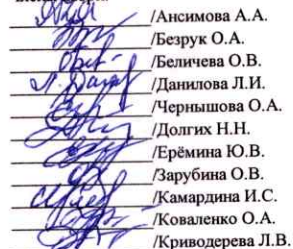 /Ансимова А.А.
/Безрук О.А.
/Беличева О.В.
/Данилова Л.И.
/Чернышова О.А.
/Долгих Н.Н.
/Ерёмина Ю.В.
/Зарубина О.В.
/Камардина И.С.
/Коваленко О.А.
/Криводерева Л.В.